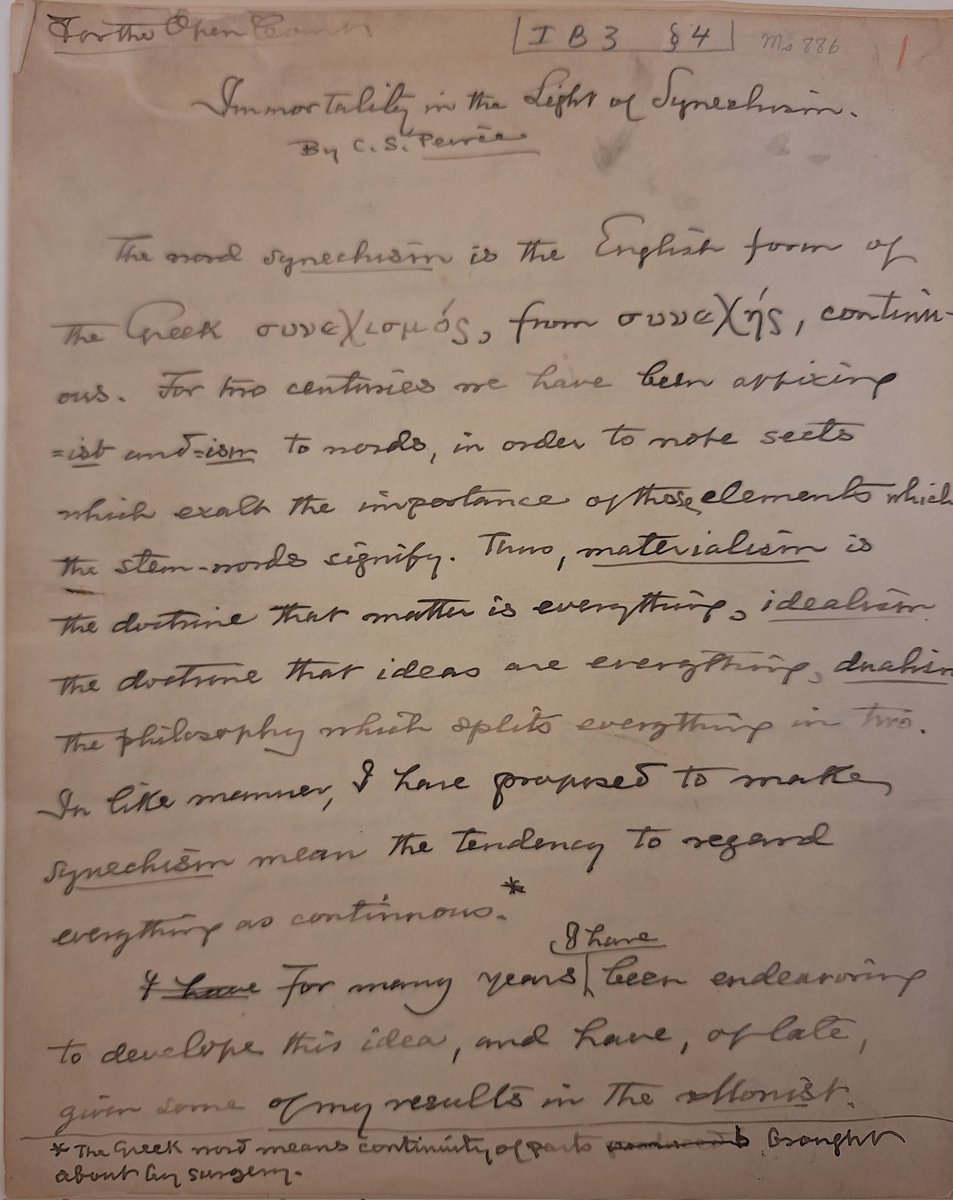 For the Open Court
I B 3 § 4
Ms 886
Immortality in the Light of Synechism.
By C. S. Peirce
The word synechism is the English form of
the Greek συνεχισμός, from συνεχής, continu-
ous. For two centuries we have been affixing
=ist and =ism to words, in order to note sects
which exalt the importance of those elements which
the stem-words signify. Thus, materialism is
the doctrine that matter is everything, idealism
the doctrine that ideas are everything, dualism
the philosophy which splits everything in two.
In like manner, I have proposed to make
synechism mean the tendency to regard
everything as continuous.*
I have For many years I have been endeavoring
to develope this idea, and have, of late,
given some of my results in the Monist.
* The Greek word means continuity of parts brought
about by surgery.